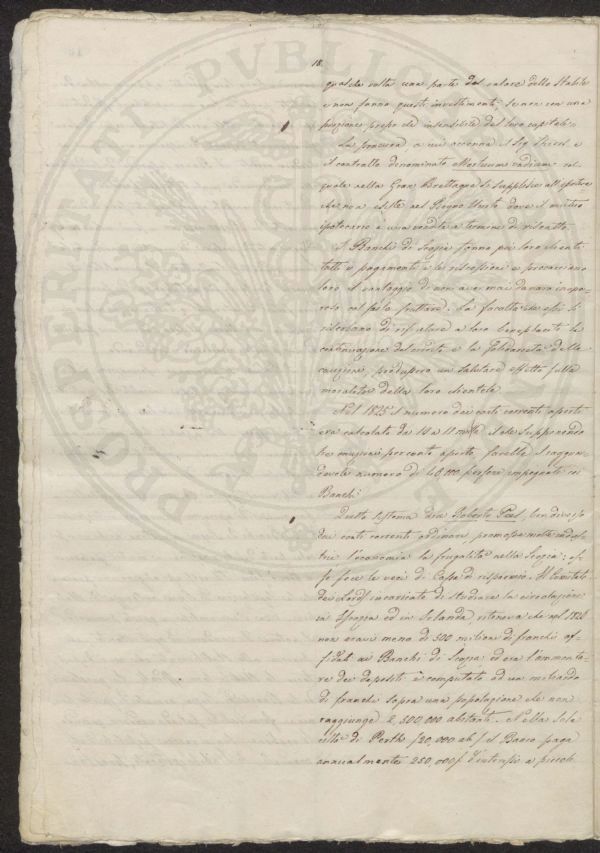 18.
qualche volta una parte del valore dello Stabile
e non fanno questi investimenti se non con una
porzione
La procura, a cui accenna il Sig. e
il contratto denominato col
quale nella Gran Brettagna si supplisce all'ipoteca
che non esiste nel Regno Unito dove il mutuo
ipotecario è una vendita a termine di riscatto.
I Banchi di Scozia fanno pei loro clienti
tutti i pagamenti e le riscossioni e procacciano
loro il vantaggio di non aver mai danaro inope-
roso col farlo fruttare. La facoltà che essi si
riserbano di rifiutare a loro beneplacito la
continuazione del credito e la solidarietà della
cauzione, produssero un salutare effetto sulla
moralità della loro clientela
Nel 1825 il numero dei conti correnti aperti
era calcolato da 10 a 11 mila. Supponendo
tre per conto aperto, sarebbe il raggua-
devole numero di 40,000 persone impegnate coi
Banchi.
Questo sistema dice Roberto Peel, ben diverso
dai conti correnti ordinari, promosse molte indus-
trie l'economia la frugalità nella Scozia; es-
so fece le veci di Cassa di risparmio. Il Comitato
dei Lords incaricato di studiare la circolazione
in Iscozia ed in Irlanda, riteneva che nel 1826
non eravi meno di 500 milioni di franchi af-
fidati ai Banchi di Scozia ed ora l'ammonta-
re dei depositi è computato ad un miliardo
di franchi sopra una popolazione che non
raggiunge 2,500 000 abitanti. Nella sola
città di Perth (20,000 ab.) il Banco paga
annualmente 250,000 f. d'interessi a piccoli
PROSPERITATI PVBLICAE